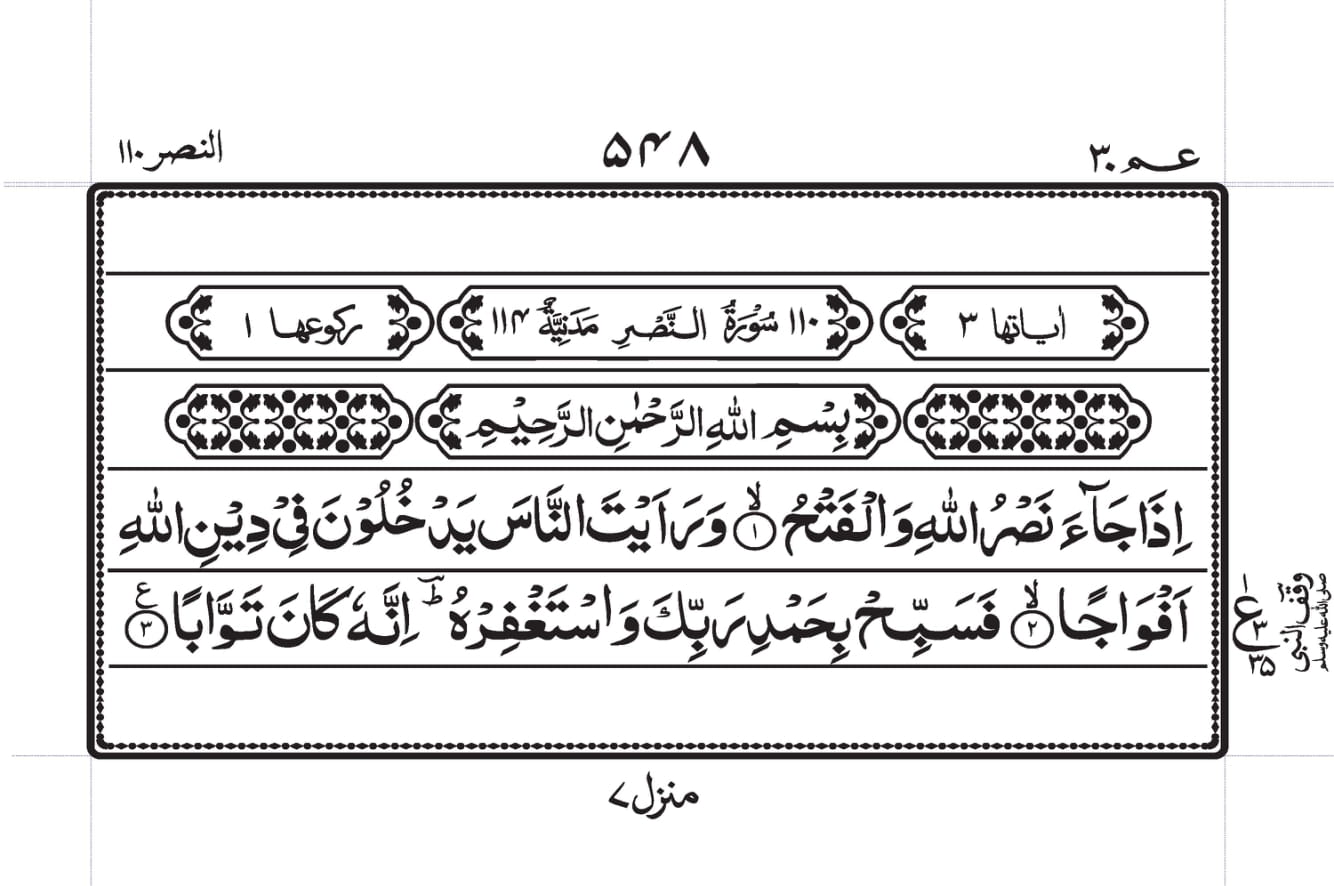 عم ۳۰ ۵۴۸ النصر ۱۱۰
اٰیاتها ۳ ۱۱۰ سُوْرَةُ النَّصْرِ مَدَنِیَّةٌ ۱۱۴ رکوعها ۱
بِسْمِ اللّٰهِ الرَّحْمٰنِ الرَّحِیْمِ
اِذَا جَآءَ نَصْرُ اللّٰهِ وَالْفَتْحُ ۙ﴿۱﴾ وَرَاَیْتَ النَّاسَ یَدْخُلُوْنَ فِیْ دِیْنِ اللّٰهِ
اَفْوَاجًا ۙ﴿۲﴾ فَسَبِّحْ بِحَمْدِ رَبِّكَ وَاسْتَغْفِرْهُ ؕ اِنَّهٗ كَانَ تَوَّابًا ﴿۳﴾ ع
ع ۳ ۳۵
وقف النبی صلی اللہ علیہ وسلم
منزل ۷